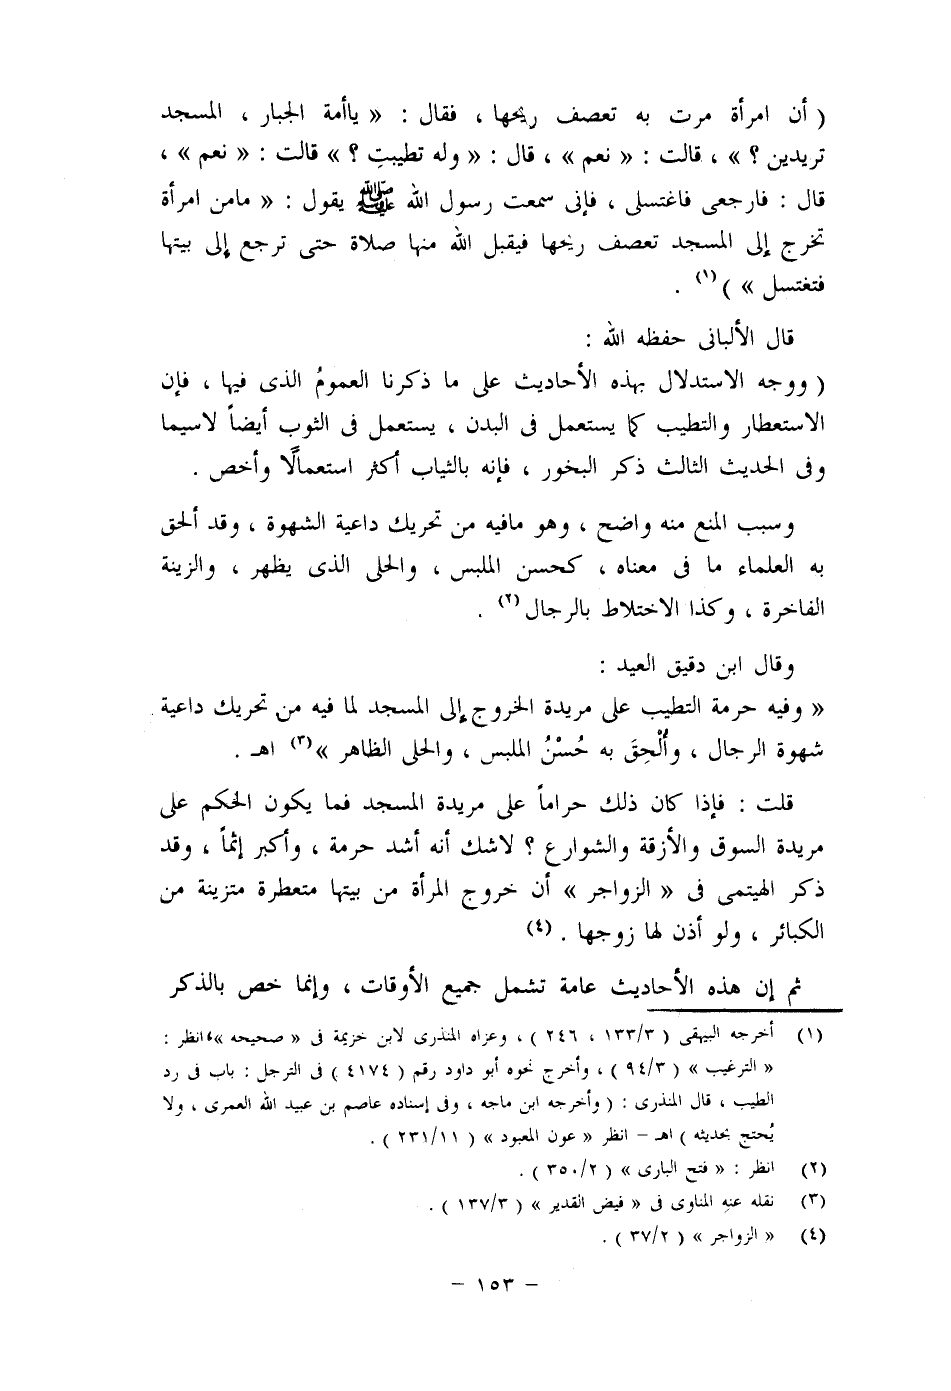 ( أن امرأة مرت به تعصف ريحها ، فقال : « ياأمة الجبار ، المسجد
تريدين ؟ » ، قالت : « نعم » ، قال : « وله تطيبتِ ؟ » قالت : « نعم » ،
قال : فارجعى فاغتسلى ، فإنى سمعت رسول الله ﷺ يقول : « مامن امرأة
تخرج إلى المسجد تعصف ريحها فيقبل الله منها صلاة حتى ترجع إلى بيتها
فتغتسل » )(١) .
قال الألبانى حفظه الله :
( ووجه الاستدلال بهذه الأحاديث على ما ذكرنا العمومُ الذى فيها ، فإن
الاستعطار والتطيب كما يستعمل فى البدن ، يستعمل فى الثوب أيضاً لاسيما
وفى الحديث الثالث ذكر البخور ، فإنه بالثياب أكثر استعمالًا وأخص .
وسبب المنع منه واضح ، وهو مافيه من تحريك داعية الشهوة ، وقد ألحق
به العلماء ما فى معناه ، كحسن الملبس ، والحلى الذى يظهر ، والزينة
الفاخرة ، وكذا الاختلاط بالرجال(٢) .
وقال ابن دقيق العيد :
« وفيه حرمة التطيب على مريدة الخروج إلى المسجد لما فيه من تحريك داعية
شهوة الرجال ، وأُلْحِقَ به حُسْنُ الملبس ، والحلى الظاهر »(٣) اهـ .
قلت : فإذا كان ذلك حراماً على مريدة المسجد فما يكون الحكم على
مريدة السوق والأزقة والشوارع ؟ لاشك أنه أشد حرمة ، وأكبر إثماً ، وقد
ذكر الهيتمى فى « الزواجر » أن خروج المرأة من بيتها متعطرة متزينة من
الكبائر ، ولو أذن لها زوجها . (٤)
ثم إن هذه الأحاديث عامة تشمل جميع الأوقات ، وإنما خص بالذكر
(١) أخرجه البيهقى ( ١٣٣/٣ ، ٢٤٦ ) ، وعزاه المنذرى لابن خزيمة فى « صحيحه »، انظر :
« الترغيب » ( ٩٤/٣ ) ، وأخرج نحوه أبو داود رقم ( ٤١٧٤ ) فى الترجل : باب فى رد
الطيب ، قال المنذرى : ( وأخرجه ابن ماجه ، وفى إسناده عاصم بن عبيد الله العمرى ، ولا
يُحتج بحديثه ) اهـ – انظر « عون المعبود » ( ٢٣١/١١ ) .
(٢) انظر : « فتح البارى » ( ٣٥٠/٢ ) .
(٣) نقله عنه المناوى فى « فيض القدير » ( ١٣٧/٣ ) .
(٤) « الزواجر » ( ٣٧/٢ ) .
– ١٥٣ –